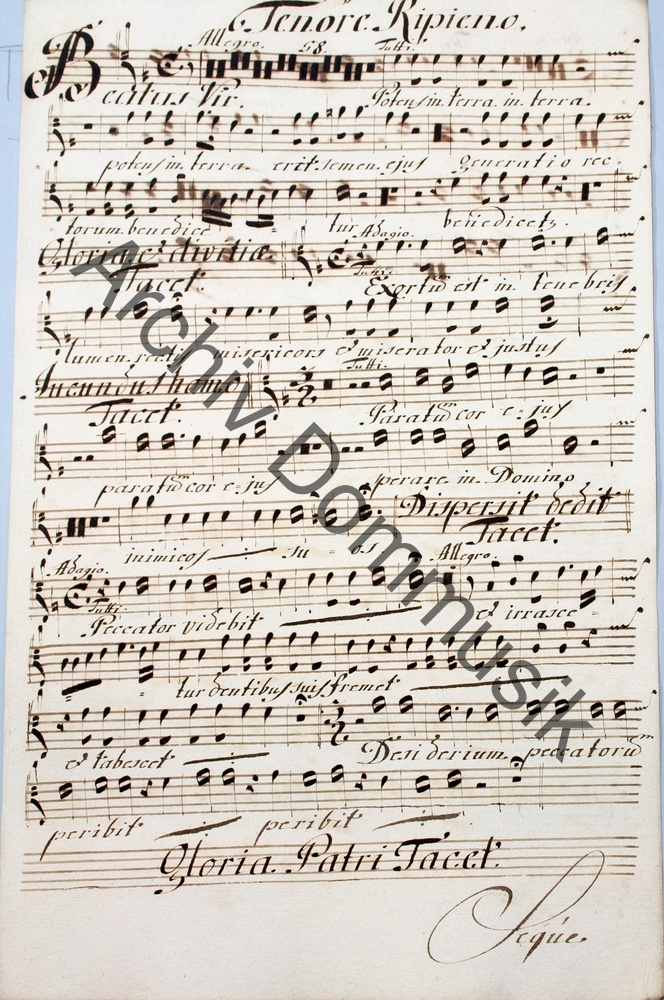 Tenore Ripieno.
Allegro. 58. Tutti.
Beatus Vir. Potens in terra. in terra.
potens in terra erit semen ejus generatio rec-
torum benedice = tur benedicet.
Gloria et divitiæ Adagio.
Tacet. Tutti. Exortũ est in tenebris
lumen rectis misericors et miserator et justus
Iucundus homo Tutti.
Tacet. Paratũ cor e-jus
paratũ cor e-jus sperare in Domino
Dispersit dedit
Tacet.
inimicos su = os
Adagio. Allegro.
Tutti.
Peccator videbit et irasce =
= tur dentibus suis fremet
et tabescet Desiderium peccatorũ
peribit peribit
Gloria Patri Tacet.
Seque
Archiv Dommusik